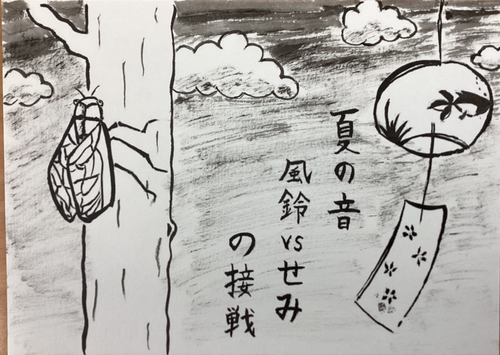 夏の音
風鈴vsせみ
の接戦